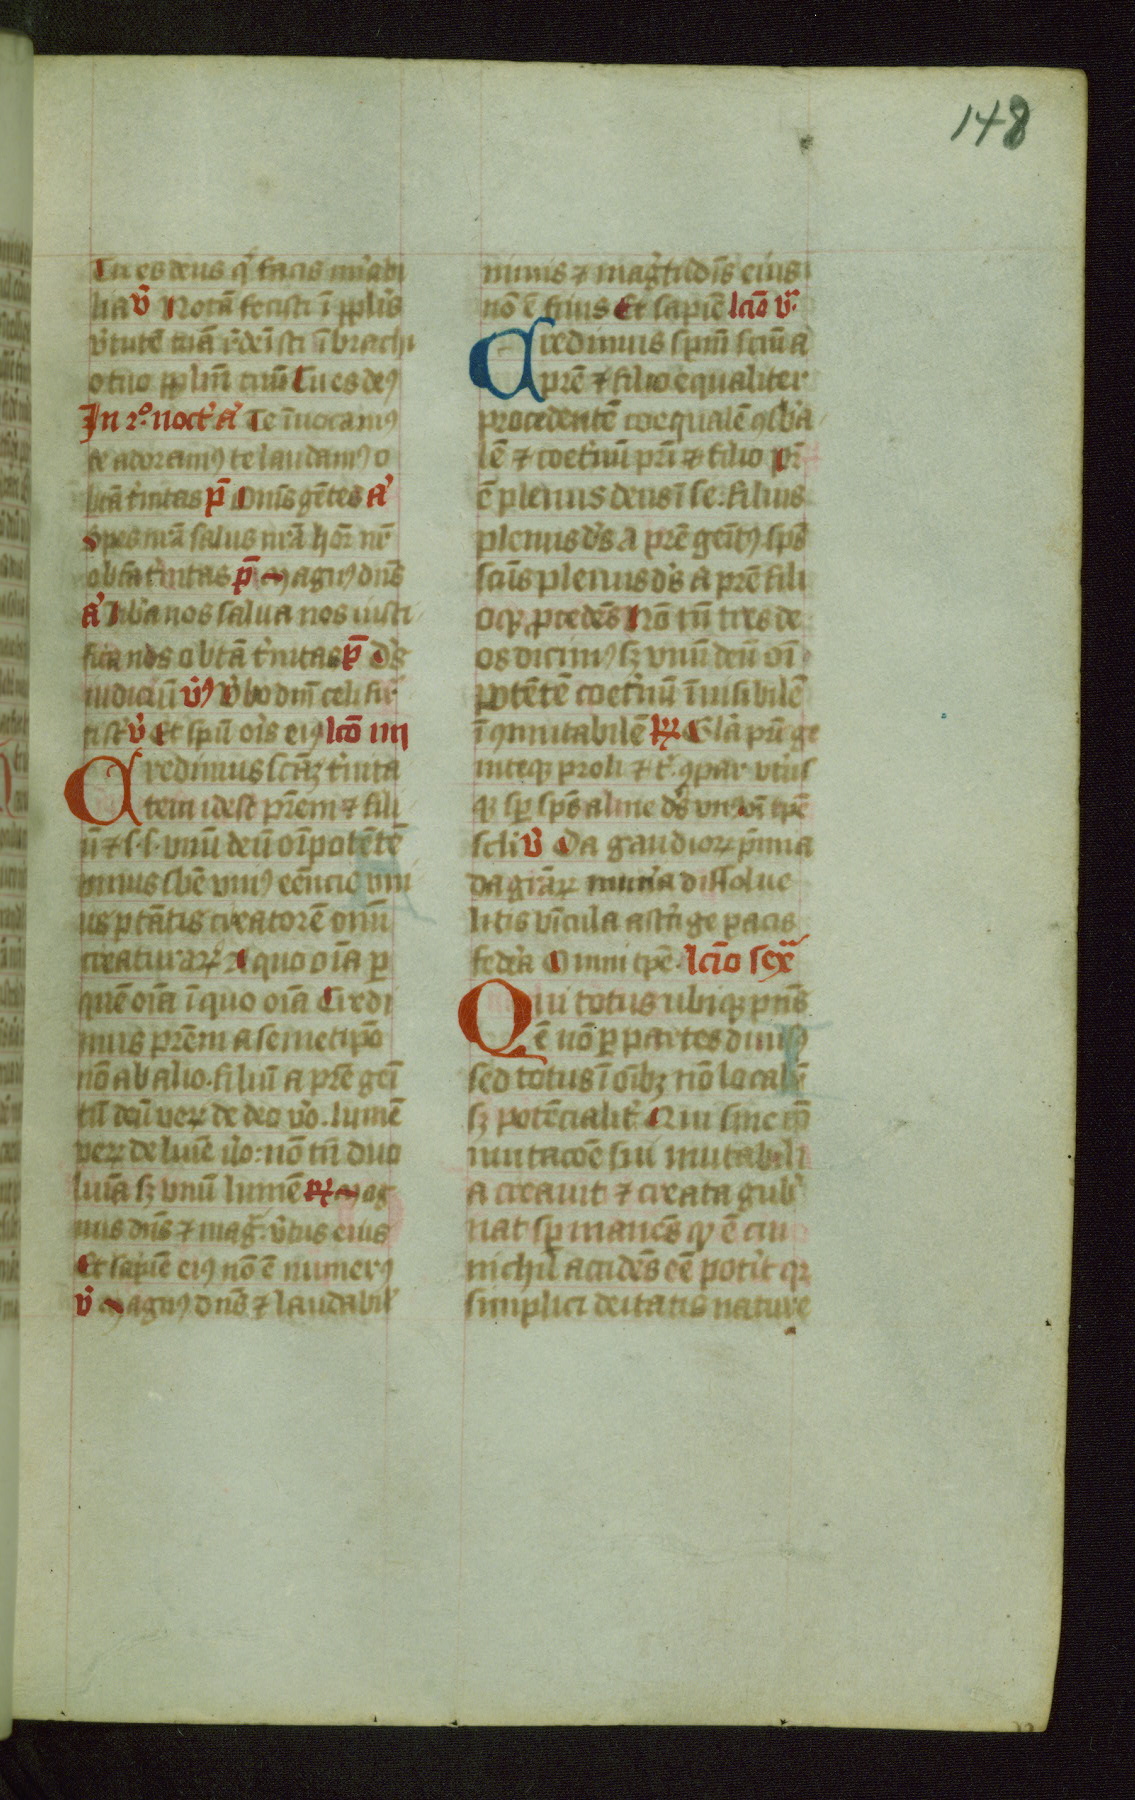 148
Tu es deus q̇ facis mirabi
lia v̉ Notā fecisti ī pplis
v̉tutē tuā r̉demisti ī brachi
o tuo pplm̄ tuū Tu es de9
In 2º noct̉ a̓ Te īuocam9
te adoram9 te laudam9 o
btā t̉nitas p̄ Dn̄s gētes a̓
Spes nr̄a salus nr̄a hōr nr̄
obtā t̉nitas p̄ Magn9 dn̄s
a̓ Lib̉a nos salua nos iusti
fica nos o btā t̉nitas p̄ ds̄
iudiciū v̉9 V̉bo dn̄i celi fir̄
ti st̉ v̉ Et spū ois ei9 lcō iiii
Credimus scāꝫ t̉nita
tem idest pr̄em ⁊ fili
ū ⁊ s. s. vnū deū oīpotētē
vnius sbē vni9 eēncie vni
us ptātis creatorē oīm̄
creaturaꝝ A quo oīa ꝑ
quē oīa ī quo oīa Credi
mus pr̄em a semetip̄o
nō ab alio. filiū a pr̄e geī
tū deū veꝝ de deo v̉o. lumē
veꝝ de luīe v̉o: nō tn̄ duo
luīa sꝫ vnū lumē ꝶ Mag
nus dn̄s ⁊ mag̉. v̉tus eius
Et sapīe ei9 nō ē numer9
v̉ Magn9 dn̄s ⁊ laudabil̉
nimis ⁊ mag̉tudīs eius
nō ē finis Et sapīe lcīo v̉
Credimus spm̄ scm̄ a
pr̄e ⁊ filio equaliter
procedentē coequalē ꝯsb̉a
lē ⁊ coet̉nū pr̄i ⁊ filio pr̄
ē plenus deus ī se: filius
plenus ds̄ a pr̄e geīt9 sps̄
scūs plenus ds̄ a pr̄e fili
oqꝫ ꝓcedēs Nō tn̄ tres de
os dicim9 sꝫ vnū deū oī
potētē coet̉nū īuisibilē
īꝯmutabilē ꝶ Gl̉a pr̄i ge
niteqꝫ proli ⁊ t̉. ꝯpar vtius
qꝫ sꝑ sps̄ alme ds̄ vn9 oī tp̄e
scli v̉ Da gaudioꝝ p̄mia
da gr̄aꝝ mun̉a dissolue
litis vīcula astrīge pacis
fed̉a Omni tp̄e. lcīo sex̉
Qui totus ubiqꝫ pn̄s
ē nō ꝑ partes diuis9
sed totus ī oībꝫ nō localr̄
sꝫ potēcialit̉ Qui sine m̄
mutacōe sui mutabili
a creauit ⁊ creata gub̉
nat sꝑ manēs cui
nichil accidēs eē pot̉it qꝛ
simplici deitatis nature